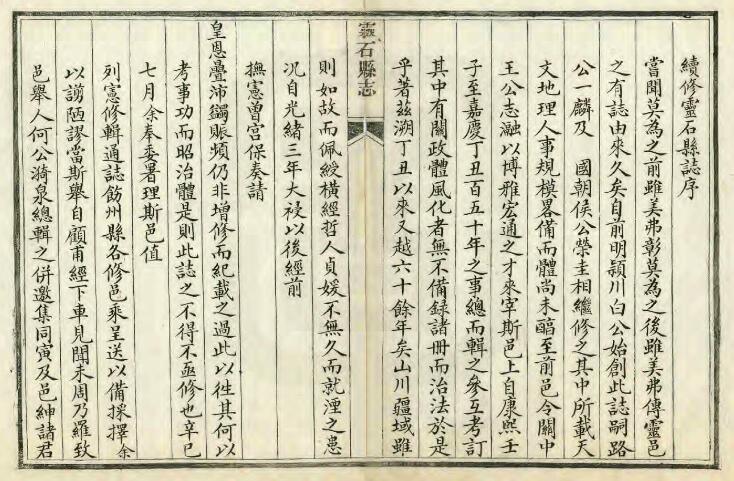 續修靈石縣誌序
嘗聞莫為之前雖美弗彰莫為之後雖美弗傳靈邑
之有誌由來久矣自前明潁川白公始創此誌嗣路
公一麟及　國朝侯公榮圭相繼修之其中所載天
文地理人事規模畧備而體尚未醇至前邑令關中
王公志瀜以博雅宏通之才來宰斯邑上自康熙壬
子至嘉慶丁丑百五十年之事總而輯之參互考訂
其中有關政體風化者無不備録諸册而治法於是
乎著茲溯丁丑以來又越六十餘年矣山川疆域雖
靈石縣志
則如故而佩綬橫經哲人貞媛不無久而就湮之患
况自光緒三年大祲以後經前
撫憲曾宫保奏請
皇恩疊沛蠲賑頻仍非增修而紀載之過此以徃其何以
考事功而昭治體是則此誌之不得不亟修也辛巳
七月余奉委署理斯邑值
列憲修輯通誌飭州縣各修邑乘呈送以備採擇余
以謭陋謬當斯舉自顧甫經下車見聞未周乃羅致
邑舉人何公漪泉總輯之併邀集同寅及邑紳諸君